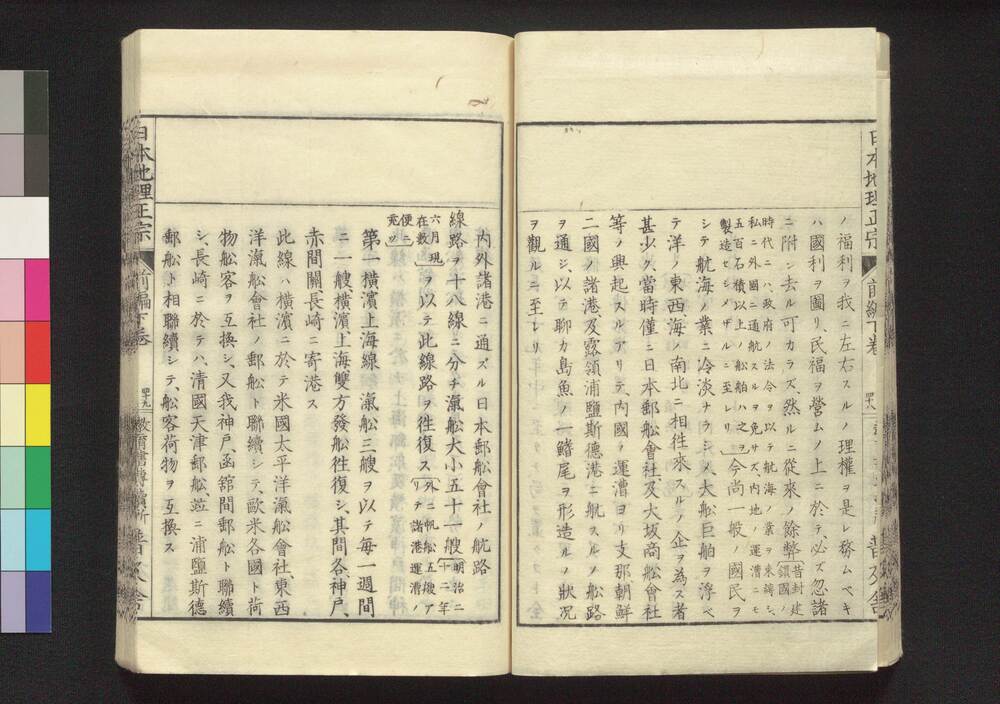 日本地理正宗
前編下卷
ノ福利ヲ我ニ左右スルノ理權ヲ是レ務ムベキ
ハ國利ヲ圖リ、民福ヲ營ムノ上ニ於テ、必ズ忽諸
ニ附シ去ル可カラズ、然ルニ從來ノ餘弊(昔封建鎖國ノ
時代ニハ、政府ノ法令ヲ以テ航海ノ業ヲ束縛シ、
私ニ外國ニ通航スルヲ免サズ、内地ノ運漕ニモ
五百石積以上ノ船舶ハ之ヲ
製造セシメザルニ至レリ)今尚一般ノ國民ヲ
シテ航海ノ業ニ冷淡ナラシメ、大船巨舶ヲ浮ベ
テ洋ノ東西海ノ南北ニ相徃來スルノ企ヲ為ス者
甚少ク、當時僅ニ日本郵船會社、及大坂商船會社
等ノ興起スルアリテ、内國ノ運漕ヨリ支那朝鮮
二國ノ諸港及露領浦鹽斯德港ニ航スルノ船路
ヲ通ジ、以テ聊カ島魚ノ一鰭尾ヲ形造ルノ狀况
ヲ觀ルニ至レリ
内外諸港ニ通ズル日本郵船會社ノ航路
線路ヲ十八線ニ分チ滊船大小五十一艘(明治二十二年
六月現在數)ヲ以テ此線路ヲ徃復ス(外ニ帆船五艘アリテ諸港運漕ノ
便ニ充ツ)
第一橫濱上海線 滊船三艘ヲ以テ每一週間
ニ一艘、橫濱、上海雙方發船徃復シ、其間各神戸、
赤間關長崎ニ寄港ス
此線ハ橫濱ニ於テ米國太平洋滊船會社東西
洋滊船會社ノ郵船ト聯續シテ、歐米各國ト荷
物船客ヲ互換シ、又我神戸、函館間郵船ト聯續
シ、長崎ニ於テハ、清國天津郵船、竝ニ浦鹽斯德
郵船ト相聯續シテ、船客荷物ヲ互換ス
日本地理正宗
前編下卷
四十九